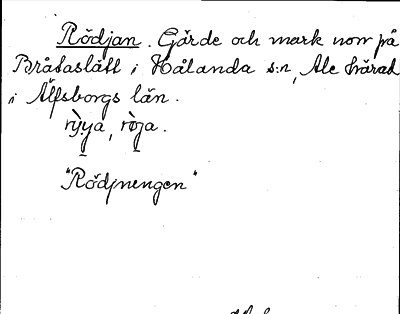 Rödjan. Gärde och mark norr på
Bråtaslätt i Hålanda s:n, Ale härad
i Älfsborgs län.
"Rödjnengen"